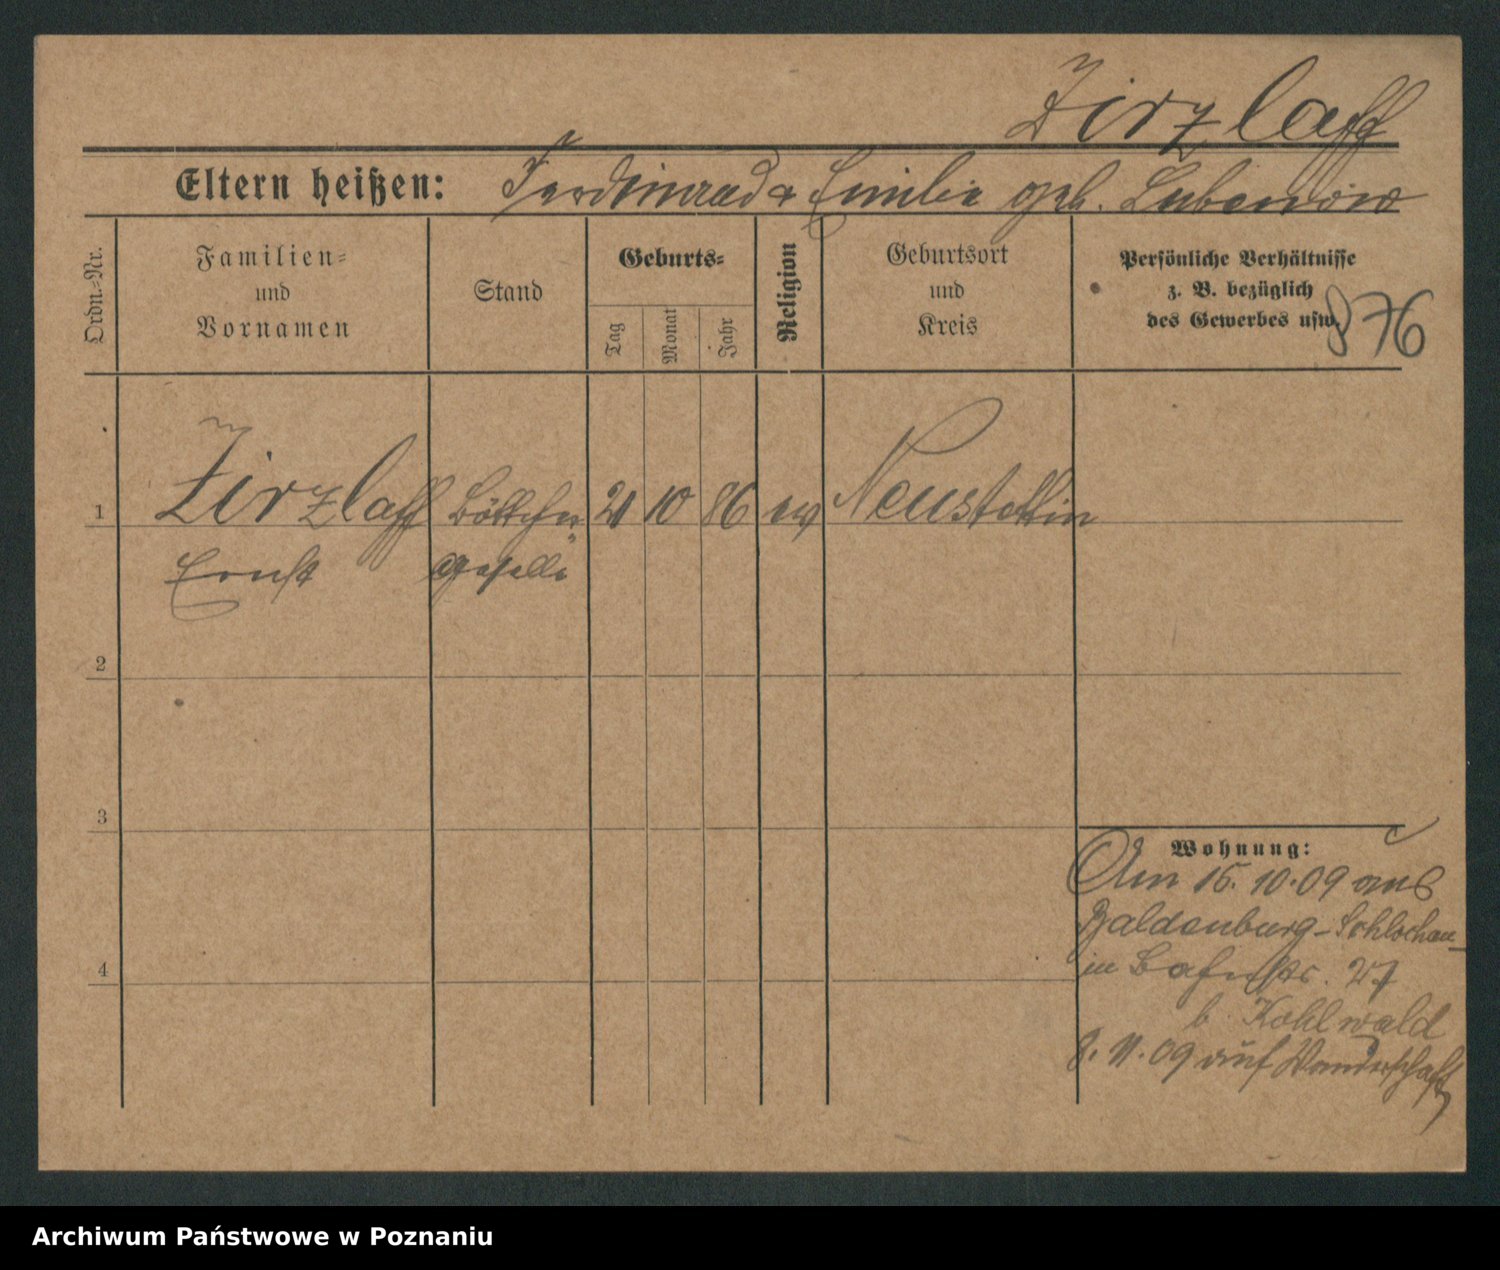 Zirzlaff
Eltern heißen: Ferdinand & Emilie geb. Lubenow
Ordn.-Nr.
Familien-
und
Vornamen
Stand
Geburts-
Tag
Monat
Jahr
Religion
Geburtsort
und
Kreis
Persönliche Verhältnisse
z. B. bezüglich
des Gewerbes usw.
876
1 Zirzlaff Böttcher 21 10 86 ev Neustettin
Ernst geselle
2
3
4
Wohnung:
Am 15.10.09 aus
Baldenburg-Schlochau
in 27
b. Kohlwald
8.11.09 auf Wanderschaft
Archiwum Państwowe w Poznaniu